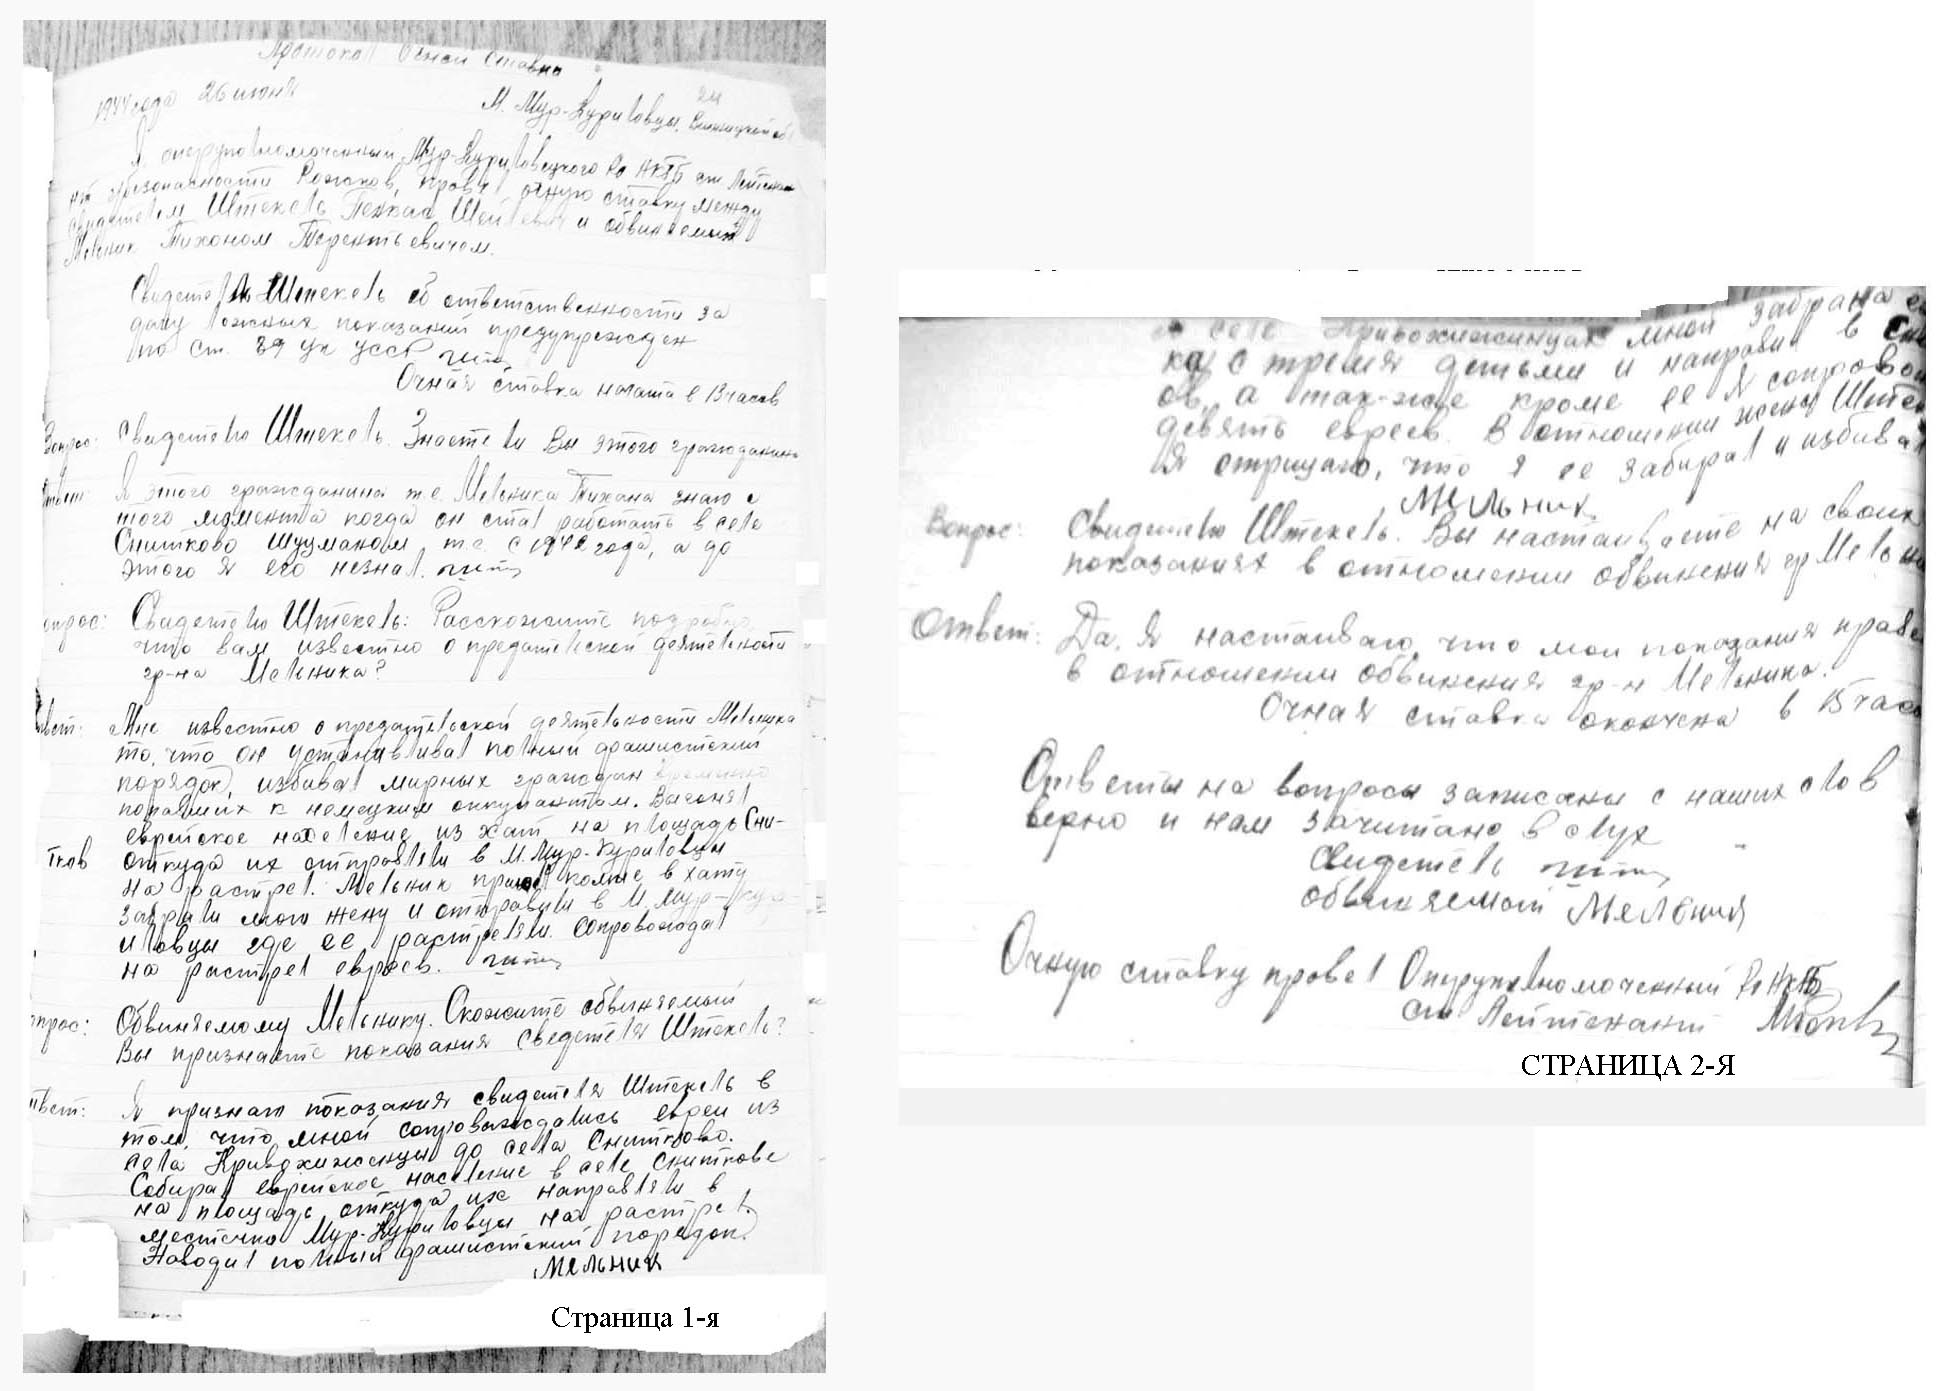 Протокол Очной Ставки
1944 года 26 июня
24
М. Мур-Куриловцы, Винницкой обл
Я оперуполномоченный Мур-Куриловецкого Ро НКГБ ст Лейтена
нт госбезопасности Рожков, провел очную ставку между
свидетелем Штекель Пейсах Шейлевич и обвиняемый
Мельник Тихоном Терентьевичем.
Свидетель Штекель об ответственности за
дачу ложных показаний предупрежден
по ст. 89 Ук УССР
Очная ставка начата в 13 часов
Вопрос: Свидетелю Штекель. Знаете ли Вы этого гражданина
Ответ: Я этого гражданина т.е. Мельника Тихона знаю с
того момента когда он стал работать в селе
Снитково шуцманом т.е. с 1942 года, а до
этого я его незнал.
опрос: Свидетелю Штекель: Расскажите подробно
что вам известно о предательской деятельности
гр-на Мельника?
твет: Мне известно о предательской деятельности Мельника
то, что он устанавливал полный фашистский
порядок, избивал мирных граждан временно
попавших к немецким оккупантам. Выгонял
еврейское население из хат на площадь Сни-
тков откуда их отправляли в М. Мур-Куриловцы
на растрел. Мельник пришел помне в хату
забрали мою жену и отправили в М. Мур-кур
иловцы где ее растреляли. Сопровождал
на растрел евреев.
опрос: Обвиняемому Мельнику. Скажите обвиняемый
Вы признаете показания сведетеля Штекель?
твет: Я признаю показания свидетеля Штекель в
том, что мной сопровождались евреи из
села Кривохижинцы до села Снитково.
Собирал еврейское население в селе Сниткове
на площадь откуда их направляли в
местечко Мур-Куриловцы на растрел.
Наводил полный фашистский порядок.
Мельник
Страница 1-я
в селе Кривохижинцах мной забрана
ка с тремя детьми и направил в Сни
ов, а так-же кроме ее я сопровож
девять евреев. В отношении жены Штек
Я отрицаю, что я ее забирал и избивал
Мельник
Вопрос: Свидетелю Штекель. Вы настаиваете на своих
показаниях в отношении обвинения гр Мельни
Ответ: Да, я настаиваю, что мои показания прав
в отношении обвинения гр-н Мельника.
Очная ставка окончена в 15 часо
Ответы на вопросы записаны с наших слов
верно и нам зачитано в слух
Свидетель
обвиняемый Мельник
Очную ставку провел Оперуполномоченный Ро НКГБ
ст Лейтенант
СТРАНИЦА 2-Я